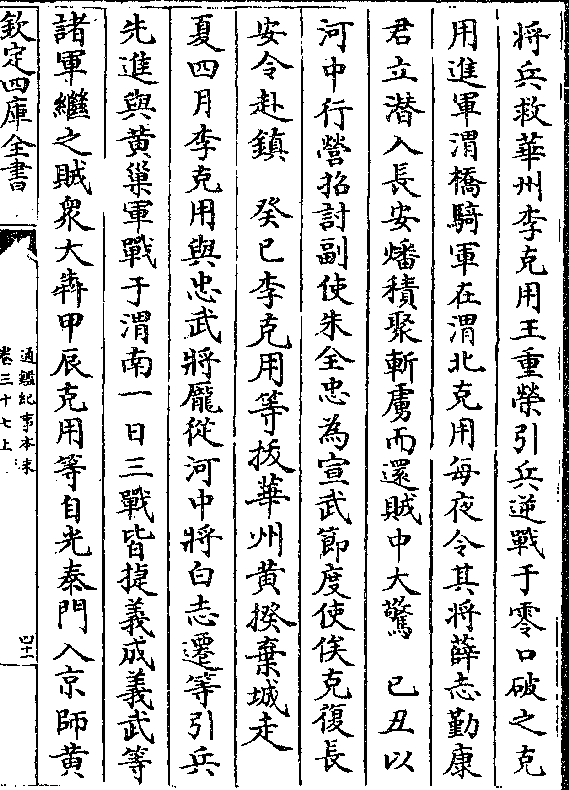 将兵救華州李克用王重榮引兵逆戰于零口破之克
用進軍渭橋騎軍在渭北克用每夜令其將薛志勤康
君立潜入長安燔積聚斬虜而還賊中大驚　已丑以
河中行營招討副使朱全忠為宣武節度使俟克復長
安令赴鎮　癸巳李克用等拔華州黄揆棄城走
夏四月李克用與忠武將龎從河中將白志遷等引兵
先進與黄巢軍戰于渭南一日三戰皆捷義成義武等
諸軍繼之賊衆大奔甲辰克用等自光泰門入京師黄
欽定四庫全書
通鑑紀事本末
卷三十七上
四十一